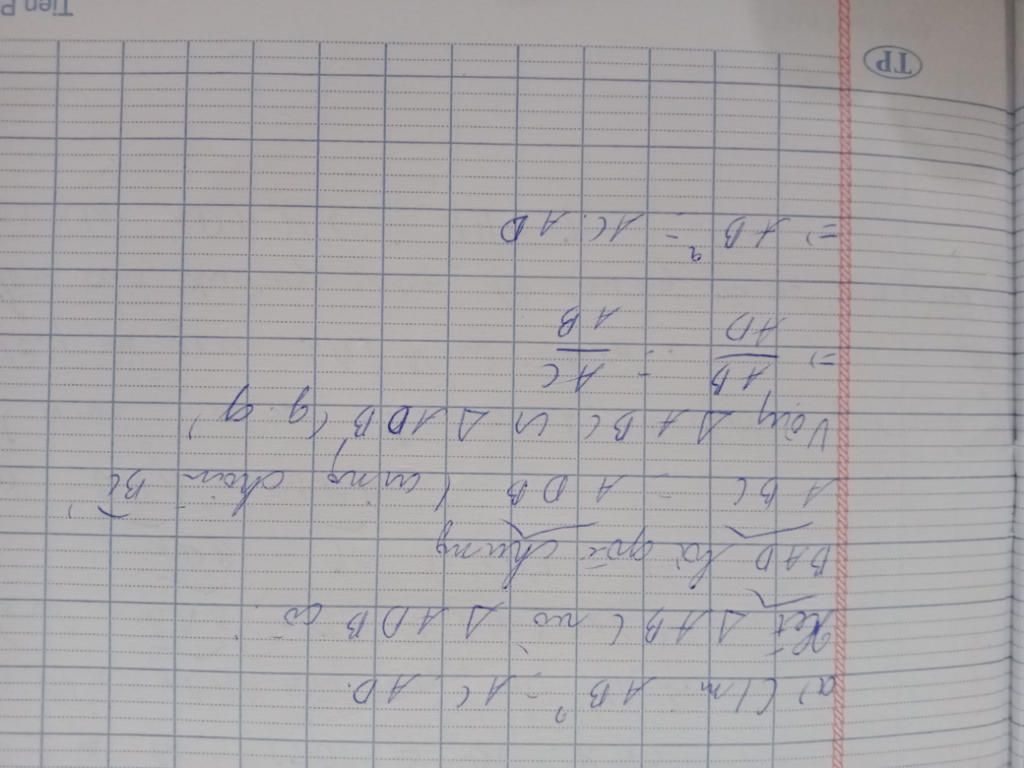 a) C/m AB² = AC. AD.
Xét Δ ABC và Δ ADB có
BAD là góc chung
ABC = ADB ( cùng chắn BC )
Vậy Δ ABC ∽ Δ ADB ( g. g )
=> AB/AD = AC/AB
=> AB² = AC. AD
TP
Tien P